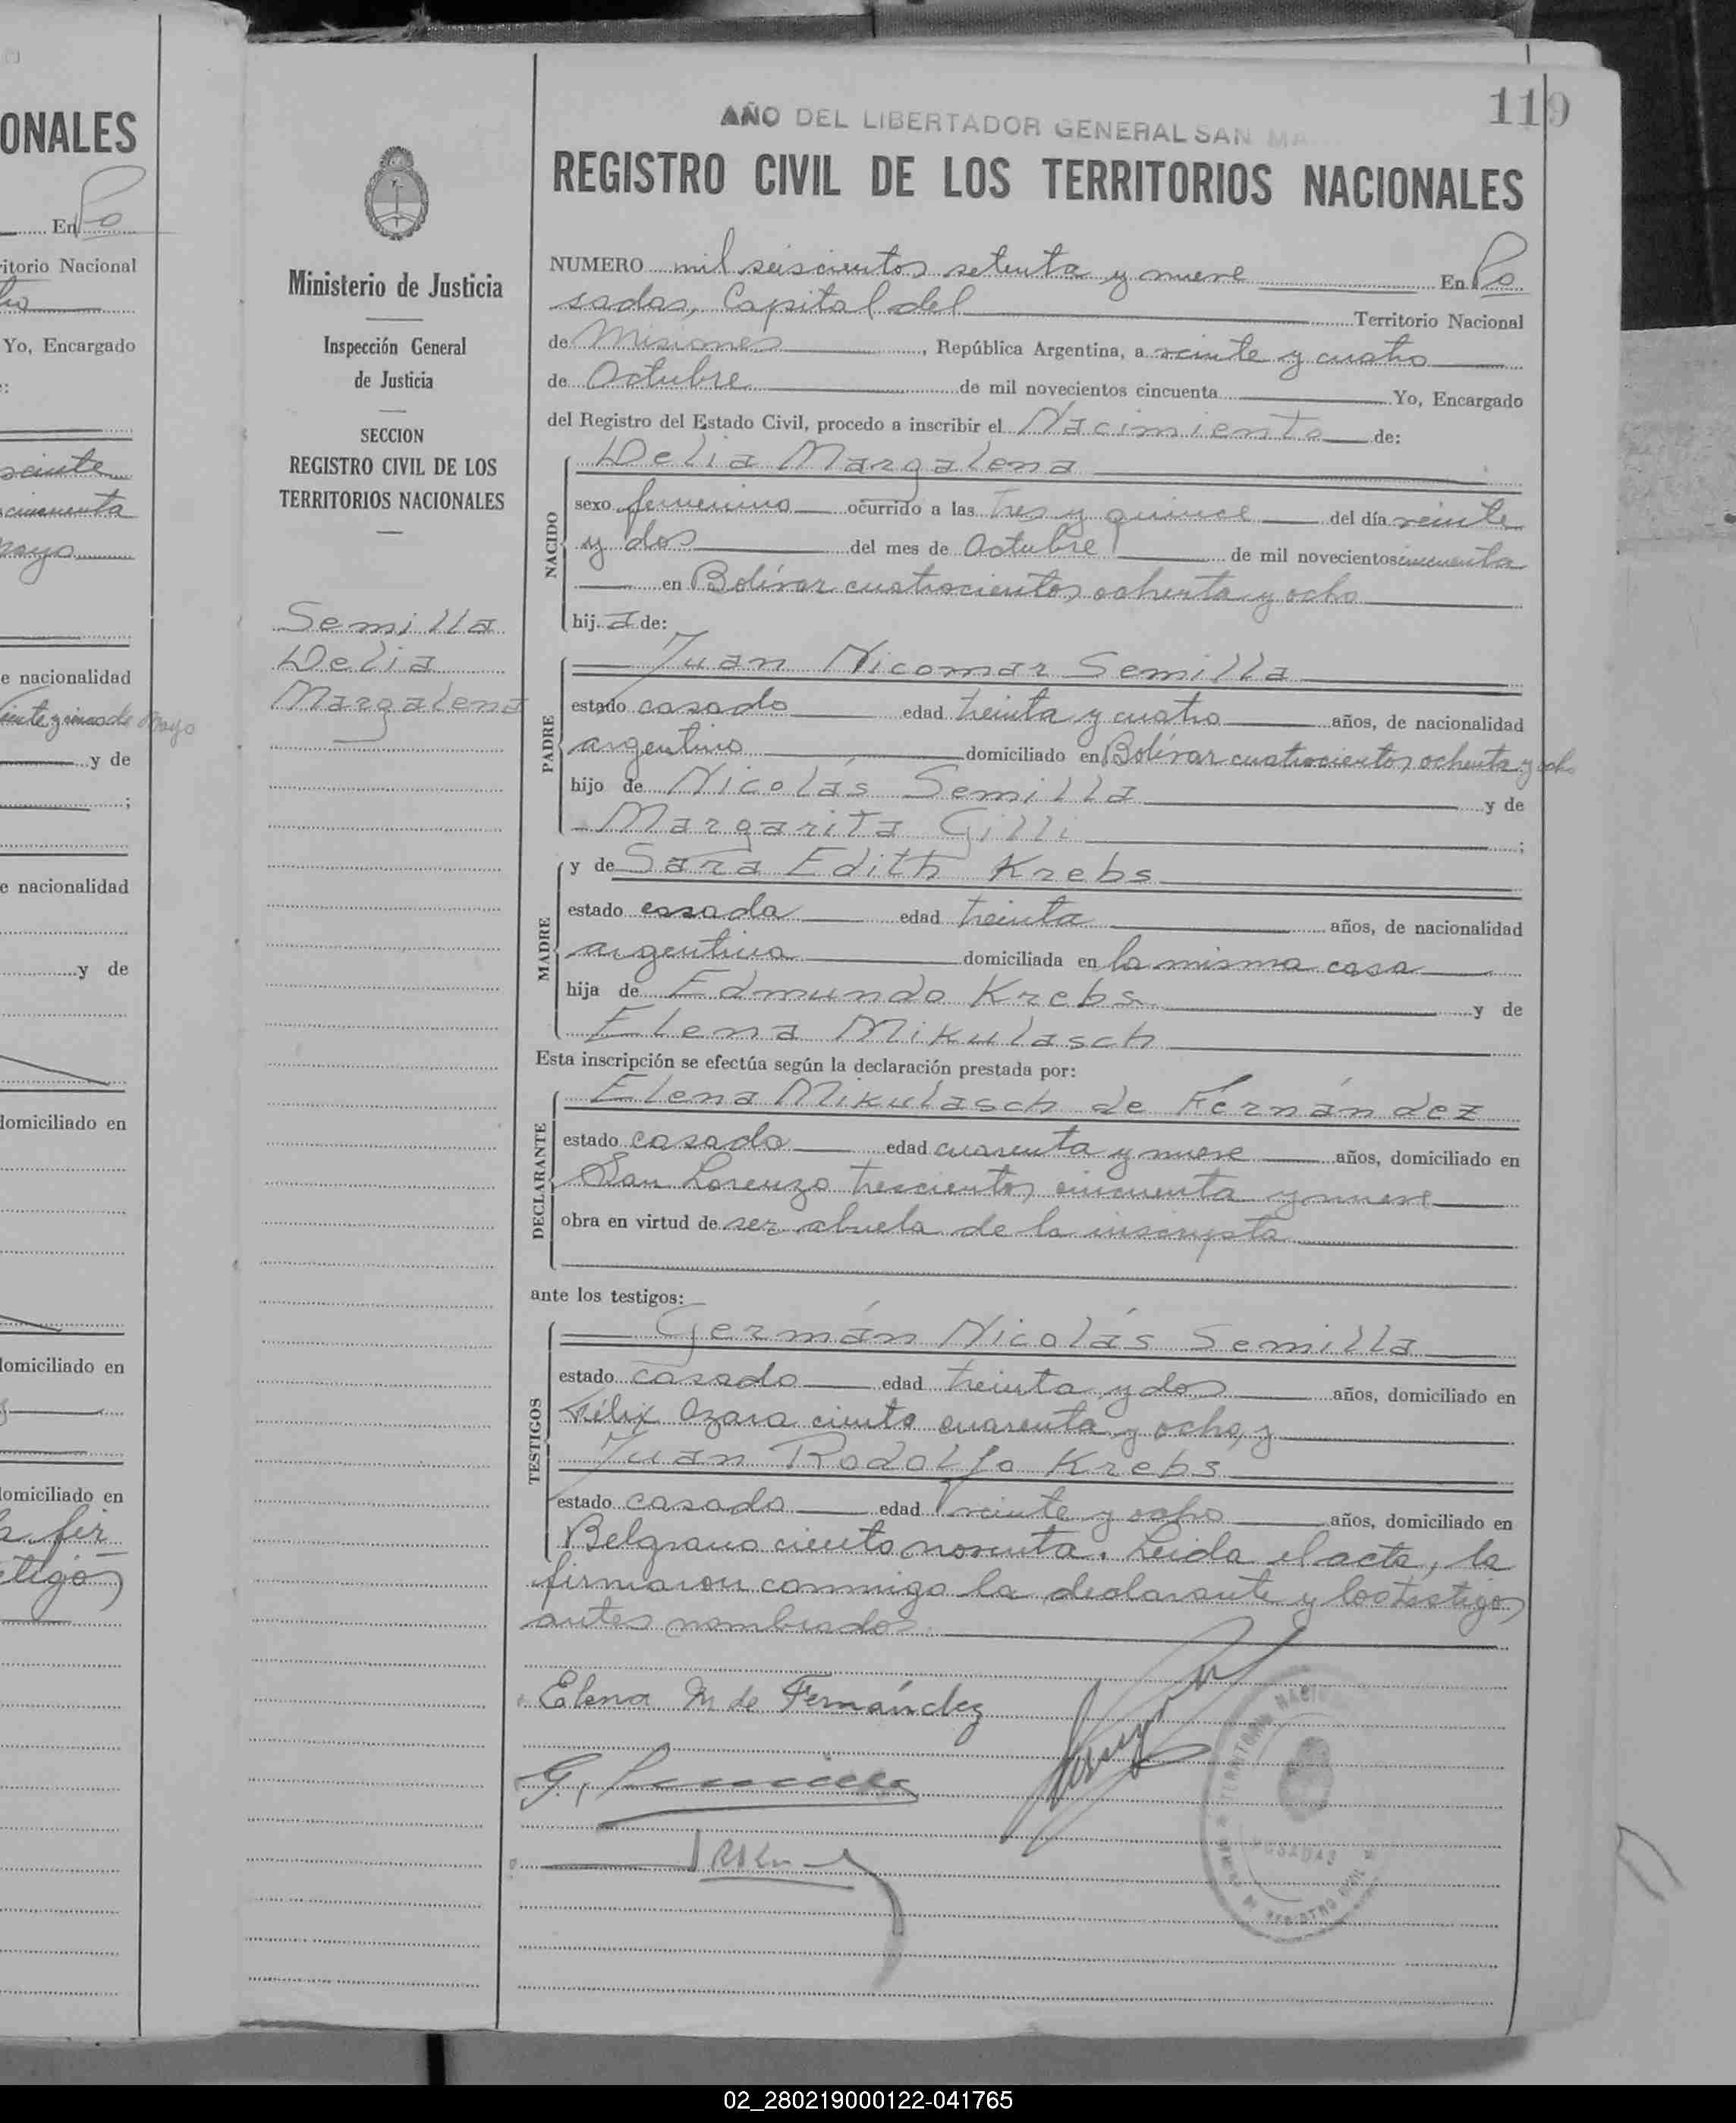 ONALES
En Po
ritorio Nacional
Yo, Encargado
veinte
cincuenta
mayo
e nacionalidad
veinte y cinco de Mayo
y de
;
e nacionalidad
y de
domiciliado en
domiciliado en
domiciliado en
la fir
tigos
119
AÑO DEL LIBERTADOR GENERAL SAN MA
REGISTRO CIVIL DE LOS TERRITORIOS NACIONALES
Ministerio de Justicia
Inspección General
de Justicia
SECCION
REGISTRO CIVIL DE LOS
TERRITORIOS NACIONALES
Semilla
Delia
Margalena
NUMERO mil seiscientos setenta y nueve En Po
sadas, Capital del Territorio Nacional
de Misiones, República Argentina, a veinte y cuatro
de Octubre de mil novecientos cincuenta Yo, Encargado
del Registro del Estado Civil, procedo a inscribir el Nacimiento de:
NACIDO
Delia Margalena
sexo femenino ocurrido a las tres y quince del día veinte
y dos del mes de Octubre de mil novecientos cincuenta
en Bolívar cuatrocientos ochenta y ocho
hija de:
PADRE
Juan Nicomar Semilla
estado casado edad treinta y cuatro años, de nacionalidad
argentino domiciliado en Bolívar cuatrocientos ochenta y ocho
hijo de Nicolás Semilla y de
Margarita Gilli ;
MADRE
y de Sara Edith Krebs
estado casada edad treinta años, de nacionalidad
argentina domiciliada en la misma casa
hija de Edmundo Krebs y de
Elena Mikulasch
Esta inscripción se efectúa según la declaración prestada por:
DECLARANTE
Elena Mikulasch de Fernández
estado casada edad cuarenta y nueve años, domiciliado en
San Lorenzo trescientos cincuenta y nueve
obra en virtud de ser abuela de la inscripta
ante los testigos:
TESTIGOS
Germán Nicolás Semilla
estado casado edad treinta y dos años, domiciliado en
Félix Azara ciento cuarenta y ocho, y
Juan Rodolfo Krebs
estado casado edad veinte y ocho años, domiciliado en
Belgrano ciento noventa. Leida el acta, la
firmaron conmigo la declarante y los testigos
antes nombrados.
Elena M de Fernández
TERRITORIO NACI
POSADAS
REGISTRO CIVIL
02_280219000122-041765